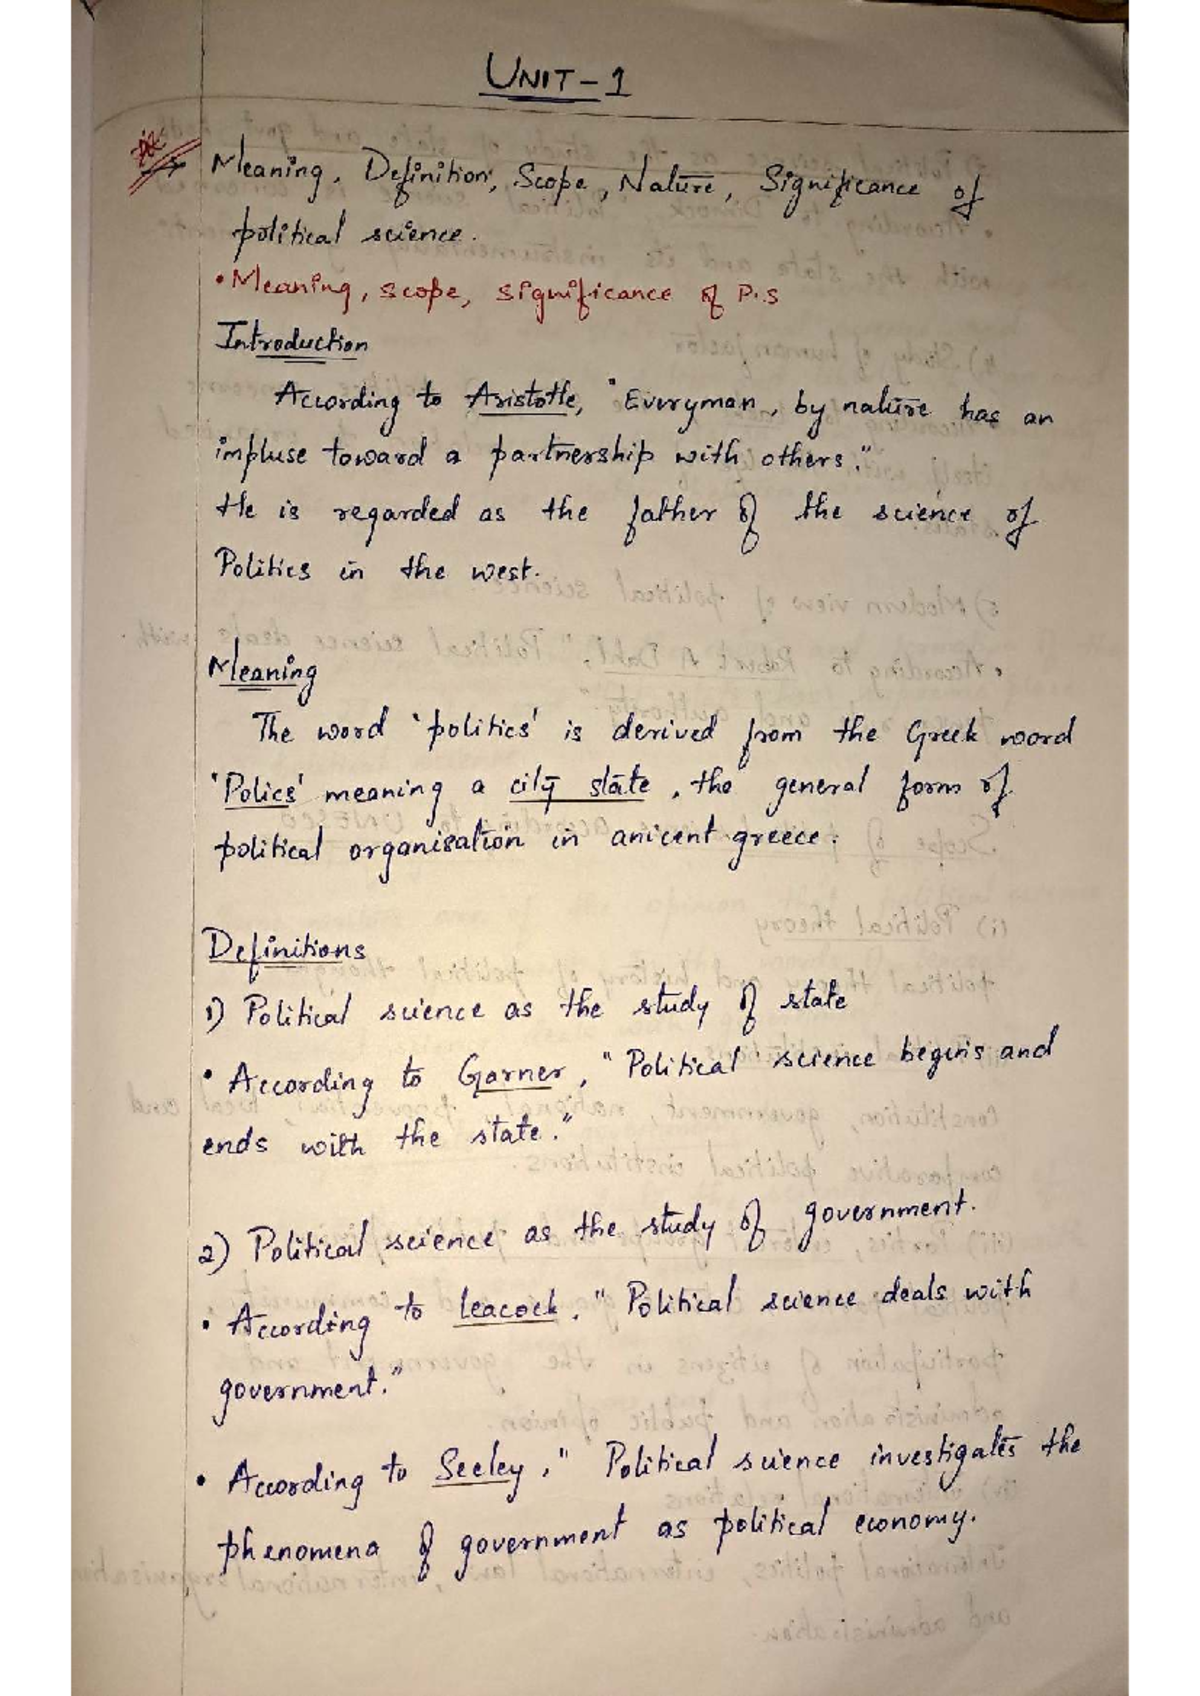 UNIT-1
→ Meaning, Definition, Scope, Nature, Significance of
political science.
• Meaning, scope, significance of P.S
Introduction
According to Aristotle, "Everyman, by nature has an
impluse toward a partnership with others."
He is regarded as the father of the science of
Politics in the west.
Meaning
The word 'politics' is derived from the Greek word
'Polics' meaning a city state, the general form of
political organisation in anicent greece.
Definitions
1) Political science as the study of state
• According to Garner, "Political science begins and
ends with the state."
2) Political science as the study of government.
• According to Leacock, "Political science deals with
government."
• According to Seeley, "Political science investigates the
phenomena of government as political economy.